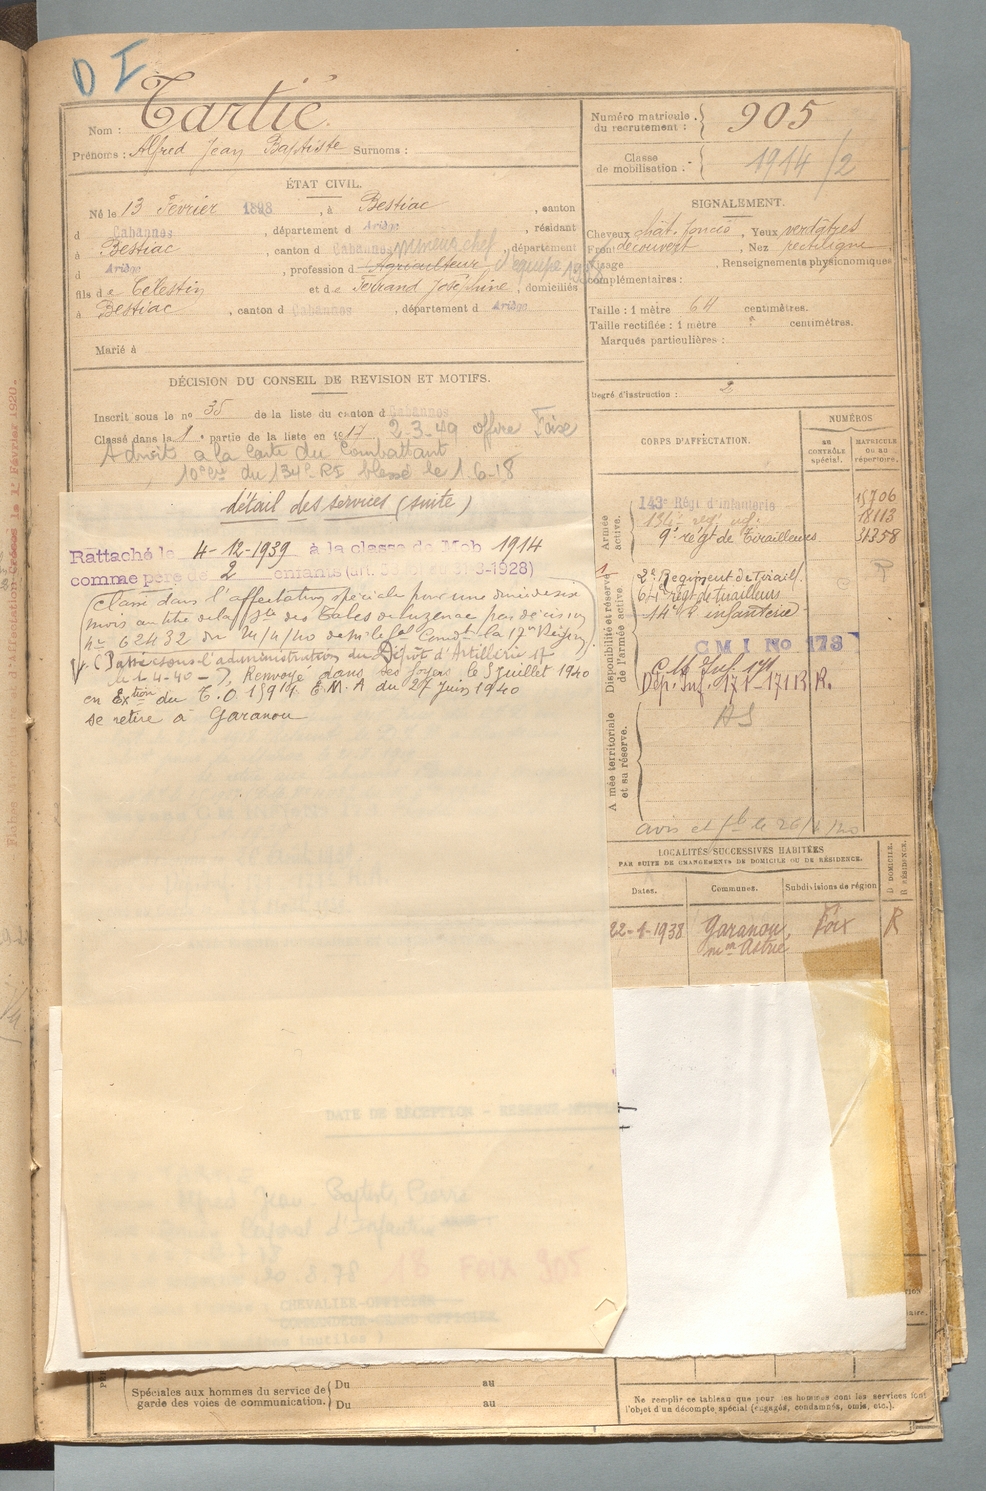 D I
Nom : Tartié.
Prénoms : Alfred Jean Baptiste Surnoms :
Numéro matricule du recrutement : 905
Classe de mobilisation : 1914/2
ÉTAT CIVIL.
Né le 13 Février 1898, à Bestiac, canton
d Cabannes, département d Ariège, résidant
à Bestiac, canton d Cabannes, département
mineur chef
d Ariège, profession d Agriculteur d'équipe
fils de Célestin et de Ferrand Joséphine, domiciliés
à Bestiac, canton d Cabannes, département d Ariège
Marié à
SIGNALEMENT.
Cheveux chât. foncés, Yeux verdâtres
Front découvert, Nez rectiligne
Visage, Renseignements physionomiques
complémentaires :
Taille : 1 mètre 64 centimètres.
Taille rectifiée : 1 mètre centimètres.
Marques particulières :
Degré d'instruction : 2
DÉCISION DU CONSEIL DE REVISION ET MOTIFS.
Inscrit sous le no 35 de la liste du canton d Cabannes
Classé dans la 1e partie de la liste en 1917 2-3-49 offire Foix
A droit à la Carte du Combattant
10e Cie du 134e RI blessé le 1.6.18
détail des services (suite)
Rattaché le 4-12-1939 à la classe de Mob 1914
comme père de 2 enfants (art. 31-3-1928)
Classé dans l'affectation spéciale pour une durée de six
mois au titre de la Sté des Talcs de Luzenac par décision
no 62432 du 4/40 de m. le Gal Comdt la 17e Région).
(Passé sous l'administration du Dépôt d'Artillerie
le 1-4-40 -), Renvoyé dans ses foyers le 5 Juillet 1940
en Extion du T.O 1591 E.M.A du 27 Juin 1940
se retire à Garanou
CORPS D'AFFECTATION.
NUMÉROS
au CONTRÔLE spécial.
MATRICULE ou au répertoire.
Armée active.
143e Régt d'infanterie 15706
134e rég. inf. 18113
9e régt de Tirailleurs 31358
Disponibilité et réserve de l'armée active
2e Régiment de Tirail. R
64e régt de tirailleurs
14e d'infanterie
C M I No 173
C.M. Inf. 171
Dép. Inf. 171 - 171 R.R.
Armée territoriale et sa réserve.
AS
avis et
LOCALITÉS SUCCESSIVES HABITÉES
PAR SUITE DE CHANGEMENTS DE DOMICILE OU DE RÉSIDENCE.
Dates. Communes. Subdivisions de région D DOMICILE. R RÉSIDENCE.
22-1-1938 Garanou Foix R
mon Astrié
DATE DE RÉCEPTION -
Alfred Jean Baptiste Pierre
Caporal d'Infanterie
20 8.78 18 FOIX 905
CHEVALIER-OFFICIER
COMMANDEUR-GRAND OFFICIER
Spéciales aux hommes du service de garde des voies de communication. Du au
Du au
Ne remplir ce tableau que pour les hommes dont les services font
l'objet d'un décompte spécial (engagés, condamnés, omis, etc.).